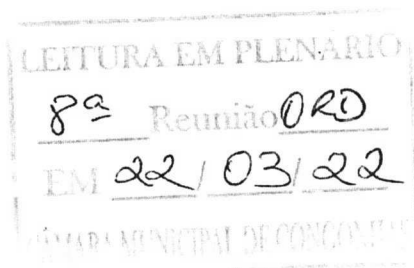 LEITURA EM PLENÁRIO
8ª Reunião ORD
EM 22/03/22
CÂMARA MUNICIPAL DE CONGONHAS